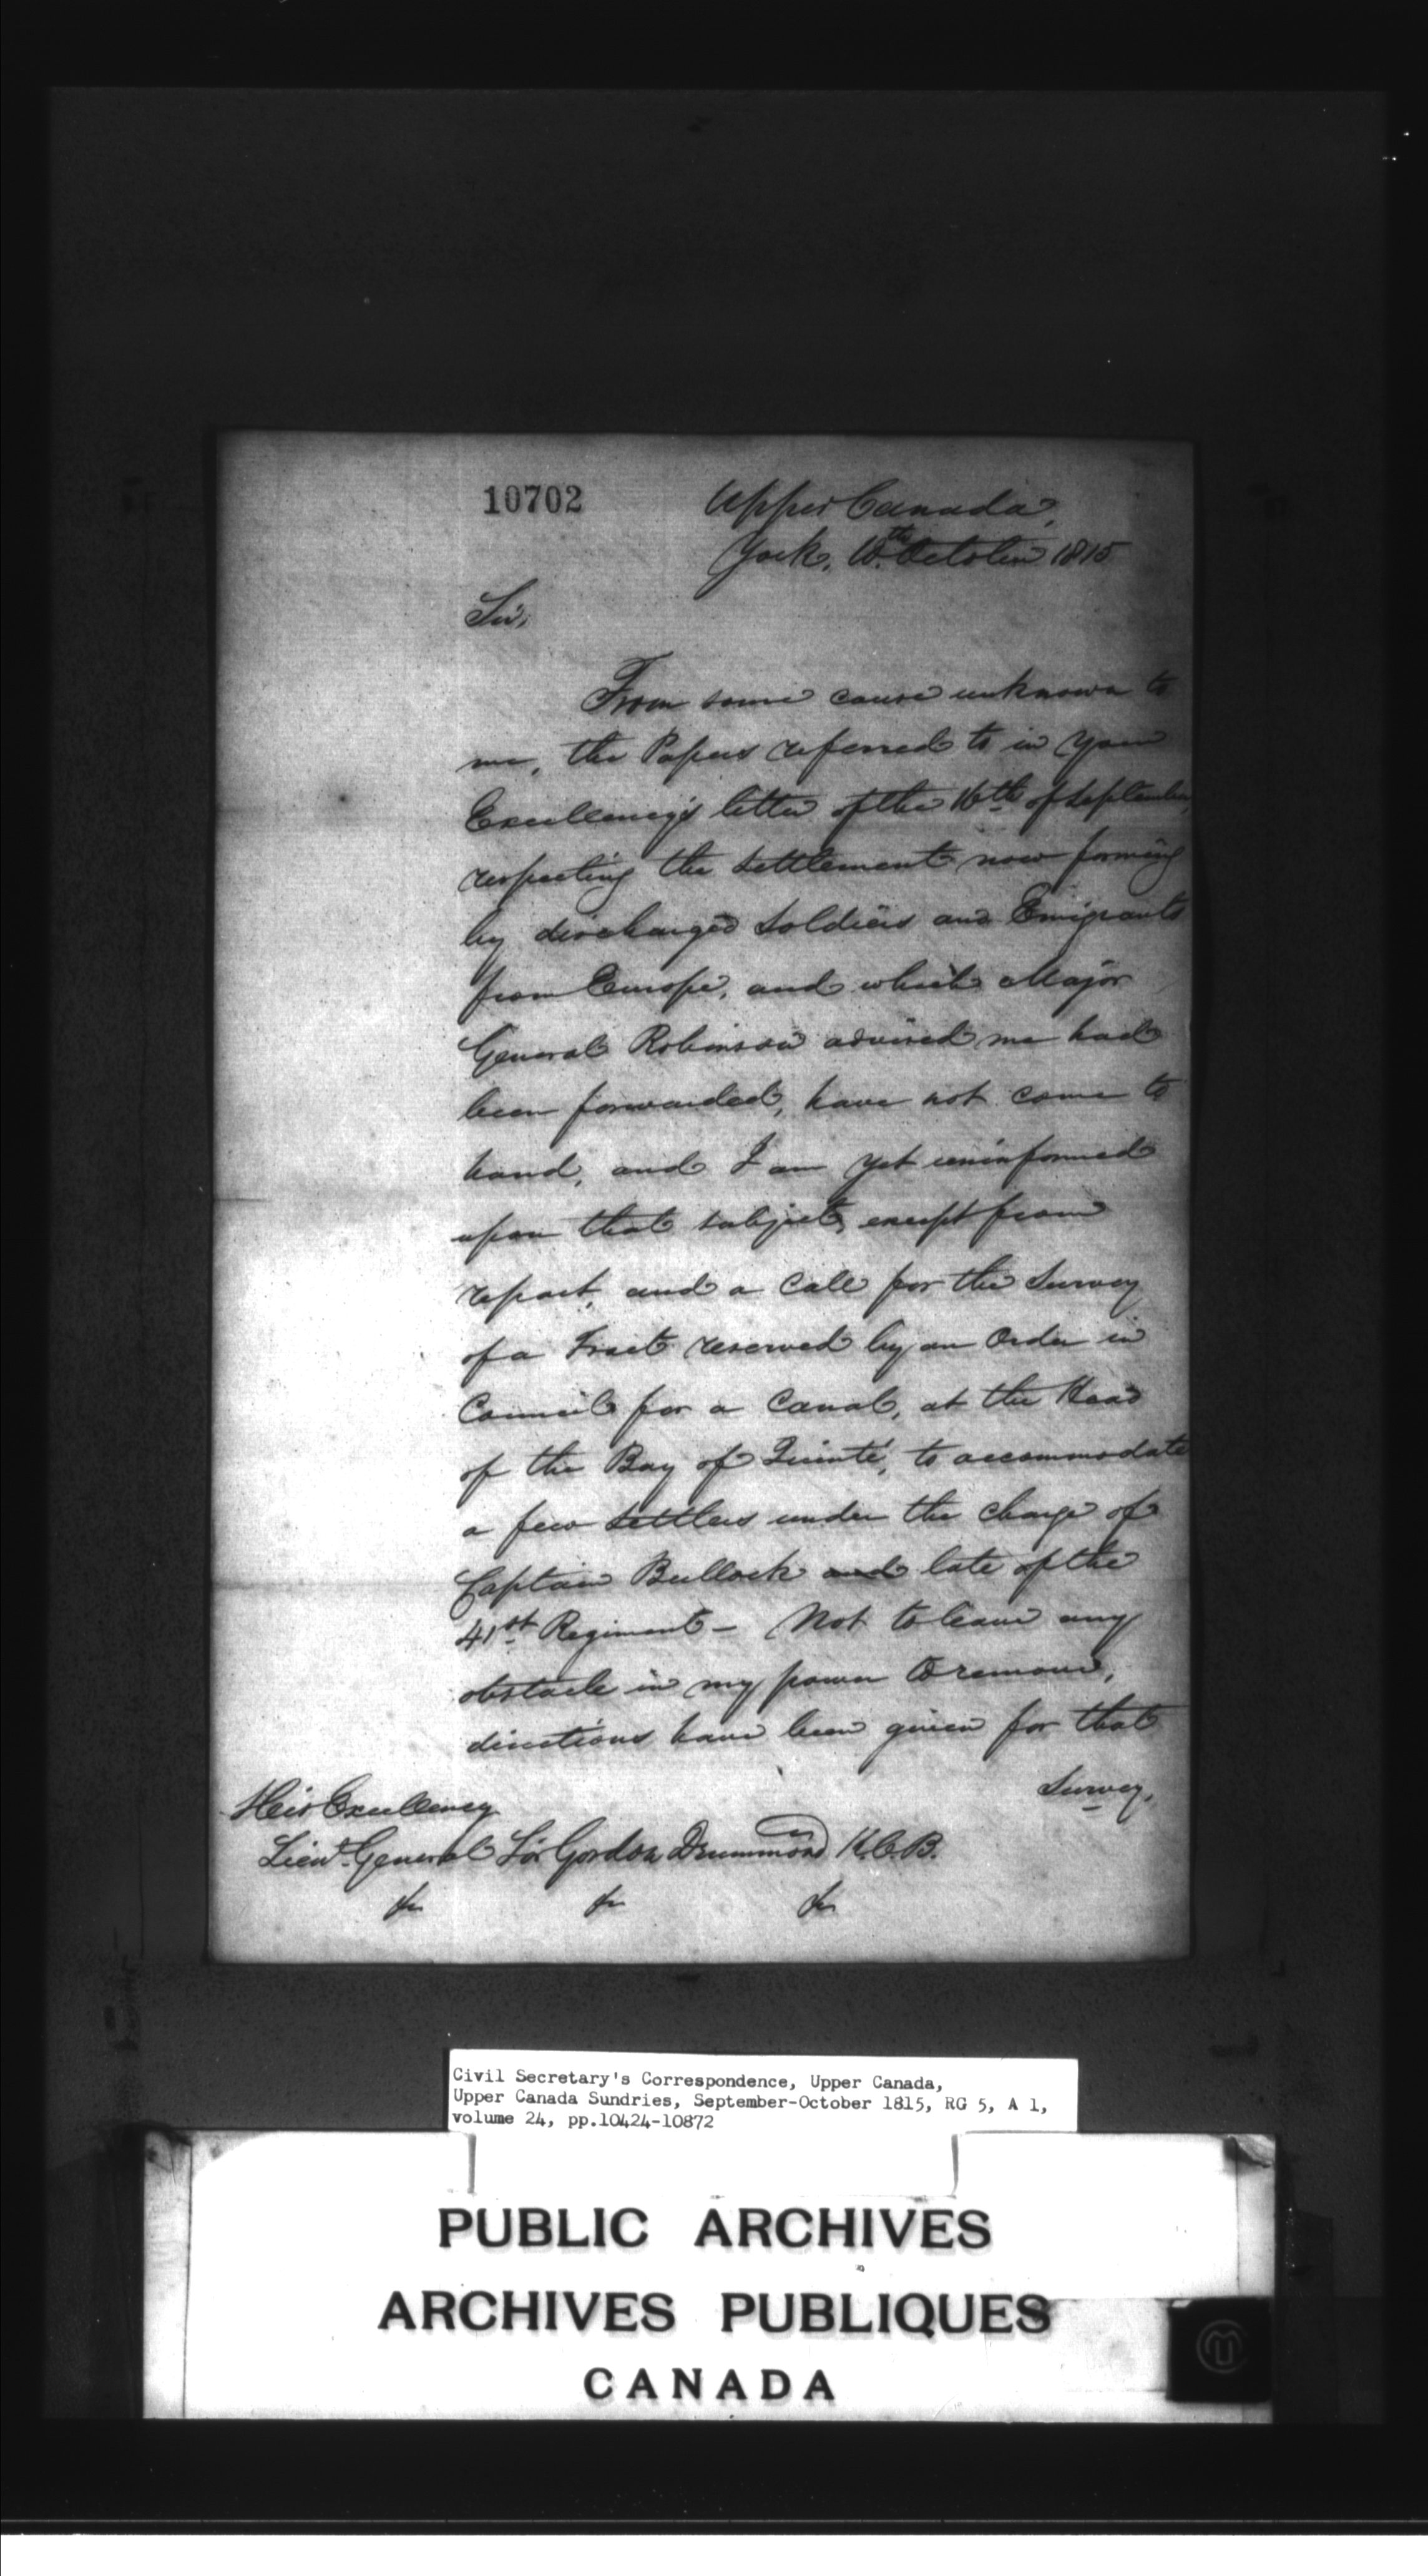 10702
Upper Canada,
York, 10th October 1815
Sir,
From some cause unknown to
me, the Papers referred to in Your
Excellency's letter of the 16th of September,
respecting the settlement now forming
by discharged Soldiers and Emigrants
from Europe, and which Major
General Robinson advised me had
been forwarded, have not come to
hand, and I am yet uninformed
upon that subject, except from
report, and a call for the Survey
of a Tract reserved by an Order in
Council for a Canal, at the Head
of the Bay of Quinté, to accommodate
a few settlers under the charge of
Captain Bullock and late of the
41st Regiment – Not to leave any
obstacle in my power to remove,
directions have been given for that
Survey.
His Excellency
Lieut. General Sir Gordon Drummond K.C.B.
&c &c &c
Civil Secretary's Correspondence, Upper Canada,
Upper Canada Sundries, September-October 1815, RG 5, A 1,
volume 24, pp.10424-10872
PUBLIC ARCHIVES
ARCHIVES PUBLIQUES
CANADA